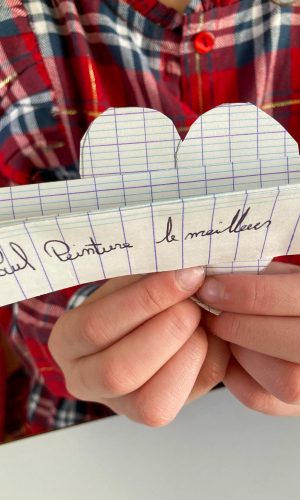 Paul Peinture le meilleur